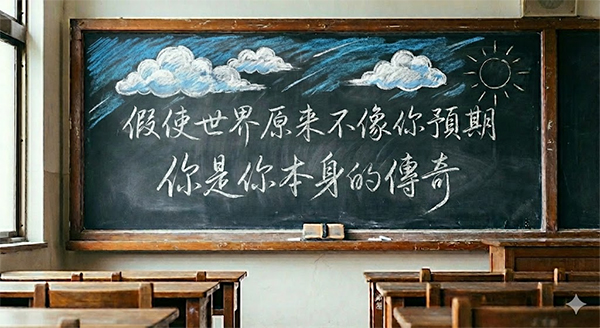 假使世界原来不像你預期
你是你本身的傳奇